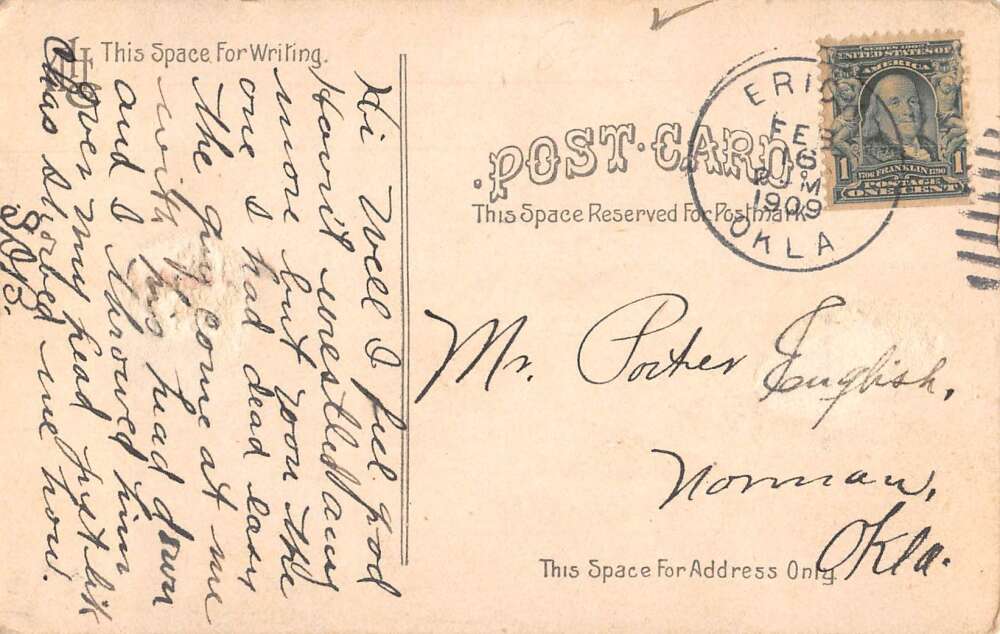 This Space For Writing.
Hi Well I feel good
Havn't wrestled any
more but won the
one I had dead easy
The guy come at me
with his head down
and I throwed him
over my head just lik
Chas showed me how.
POST CARD
This Space Reserved For Postmark
ERICK
FEB
16
P M
1909
OKLA
SERIES 1902
UNITED STATES OF
AMERICA
1706 FRANKLIN 1790
1 POSTAGE 1
ONE CENT
Mr. Porter English,
Norman,
Okla.
This Space For Address Only